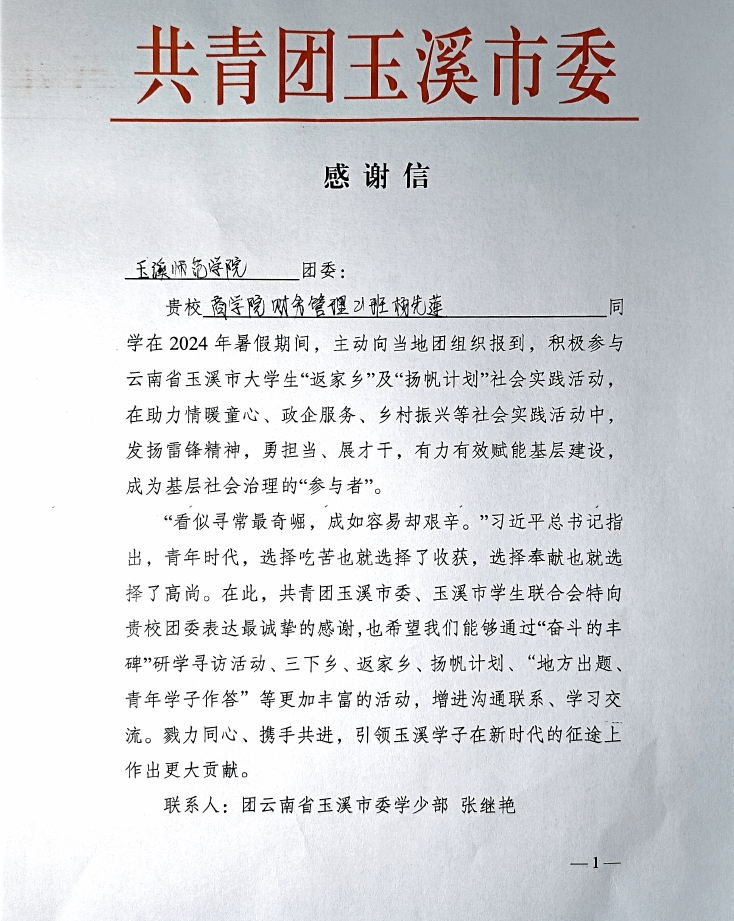 共青团玉溪市委
感谢信
玉溪师范学院 团委：
贵校 商学院财务管理21班杨先莲 同
学在 2024 年暑假期间，主动向当地团组织报到，积极参与
云南省玉溪市大学生“返家乡”及“扬帆计划”社会实践活动，
在助力情暖童心、政企服务、乡村振兴等社会实践活动中，
发扬雷锋精神，勇担当、展才干，有力有效赋能基层建设，
成为基层社会治理的“参与者”。
“看似寻常最奇崛，成如容易却艰辛。”习近平总书记指
出，青年时代，选择吃苦也就选择了收获，选择奉献也就选
择了高尚。在此，共青团玉溪市委、玉溪市学生联合会特向
贵校团委表达最诚挚的感谢,也希望我们能够通过“奋斗的丰
碑”研学寻访活动、三下乡、返家乡、扬帆计划、“地方出题、
青年学子作答”等更加丰富的活动，增进沟通联系、学习交
流。戮力同心、携手共进，引领玉溪学子在新时代的征途上
作出更大贡献。
联系人：团云南省玉溪市委学少部 张继艳
—1—